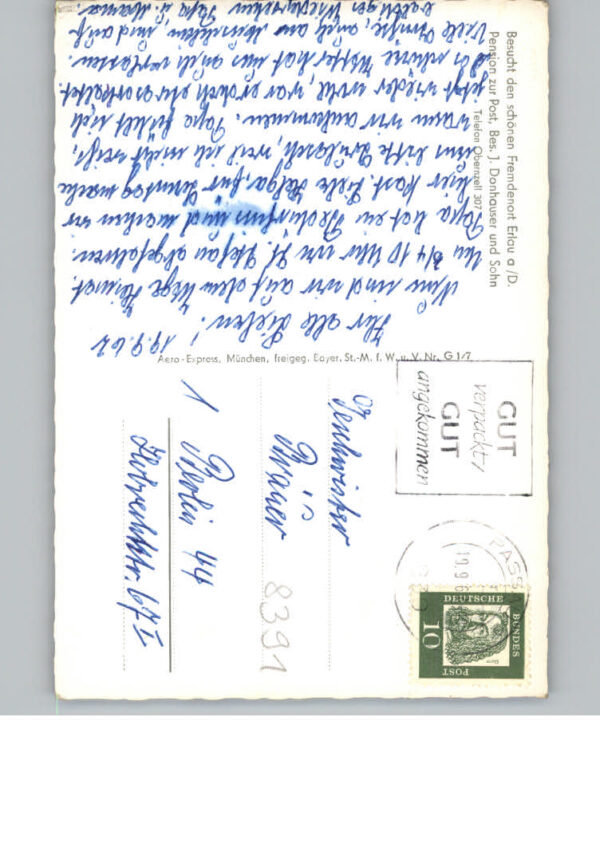 Besucht den schönen Fremdenort Erlau a/D.
Pension zur Post, Bes. J. Donhauser und Sohn
Telefon Obernzell 307
19.9.62
Ihr alle Lieben!
Nun sind wir auf dem Wege Heimat.
Um 3/4 10 Uhr von St. Stefan abgefahren.
Papa hat ein und machen wir
hier Rast. Liebe Helga, für Sonntag mache
uns bitte, weil ich nicht weiß,
wann wir ankommen. Papa fühlt sich
jetzt wieder wohl, war er doch etwas erkältet.
Das schöne Wetter hat uns auch verlassen.
Viele Grüße, auch an, und auf
Wiedersehen Papa u. Mama.
Aero-Express, München, freigeg. Bayer. St.-M. f. W. u. V. Nr. G 1/7
GUT
verpackt,
GUT
angekommen
PASSAU
19.9.6
DEUTSCHE
BUNDES
POST
10
Dürer
Geschwister
1 Berlin 44
67 I
8391